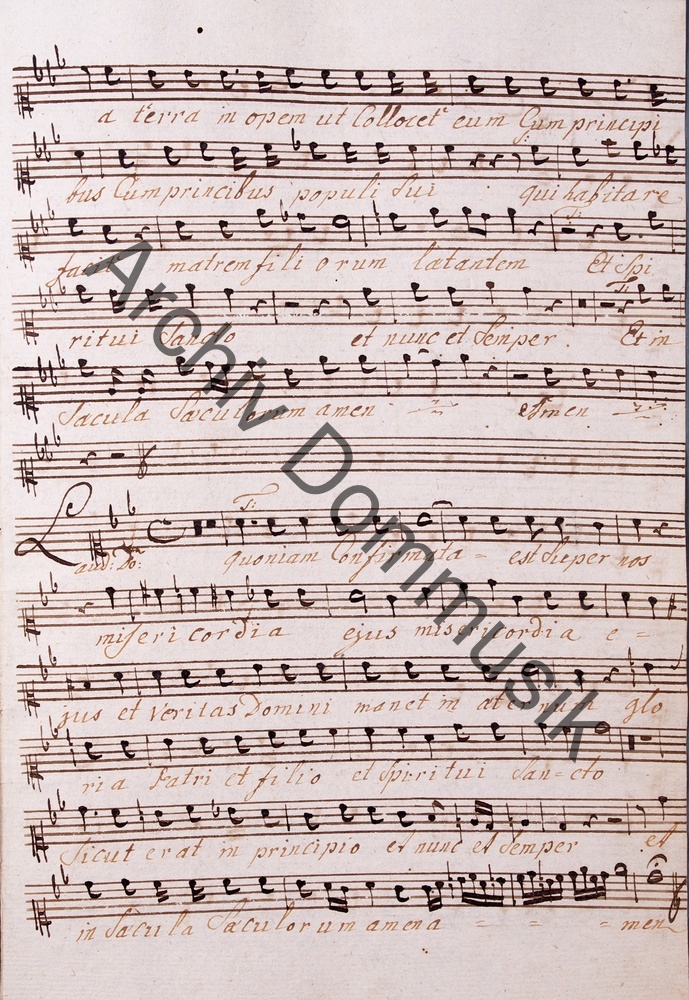 a terra inopem ut Collocet eum Cum principi
bus Cum principibus populi sui qui habitare
facit matrem filiorum lætantem Et Spi
ritui Sancto et nunc et Semper Et in
Sæcula Sæculorum amen Amen
F:
Laud: Do: quoniam Confirmata = est super nos
misericordia ejus misericordia e =
jus et Veritas Domini manet in æternum glo
ria Patri et filio et Spiritui San = cto
Sicut erat in principio et nunc et Semper et
in Sæcula Sæculorum amen a = = = men
Archiv Dommusik